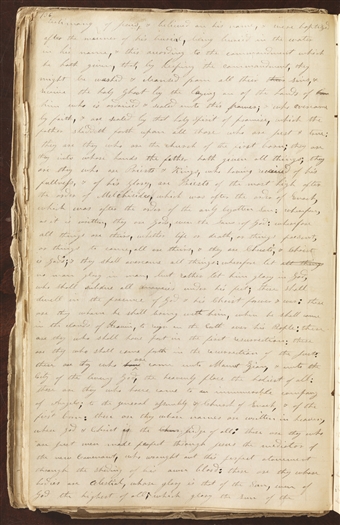 testimony of Jesus, & believed on his name, & were baptized
after the manner of his burial, being buried in the water
in his name, & this according to the commandment which
he hath given, that, by keeping the commandment, they
might be washed & cleansed from all their sins, &
receive the holy Ghost by the laying on of the hands of
him who is ordained & sealed unto this power; & who overcome
by faith, & are sealed by that holy spirit of promise, which the
father sheddeth forth upon all those who are just & true;
they are they who are the church of the first born; they are
they into whose hands the father hath given all things; they
are they who are Priests & Kings, who having received of his
fullness, & of his glory, are Priests of the most high after
the order of Melchizedek, which was after the order of Enoch,
which was after the order of the only begotten Son; wherefore,
as it is written, they are Gods, even the sons of God; wherefore
all things are theirs, whether life or death, or things present,
or things to come, all are theirs, & they are Christs, & Christ
is Gods; & they shall overcome all things; wherefore let
no man glory in man, but rather let him glory in God,
who shall subdue all enemies under his feet; these shall
dwell in the presence of God & his Christ forever & ever; these
are they whom he shall bring with him, when he shall come
in the clouds of Heaven, to reign on the Earth over his People; these
are they who shall have part in the first resurrection; these
are they who shall come forth in the resurrection of the just;
these are they who are come unto Mount Zion, & unto the
City of the living God, the heavenly place the holiest of all;
these are they who have come to an innumerable company
of Angels; to the general assembly & Church of Enoch, & of the
first born; these are they whose names are written in heaven,
where God & Christ is the judge of all; these are they who
are just men made perfect through Jesus the mediator of
the new Covenant, who wrought out this perfect atonement
through the shedding of his own blood; these are they whose
bodies are Celestial, whose glory is that of the Sun, even of
God the highest of all; which glory the Sun of the